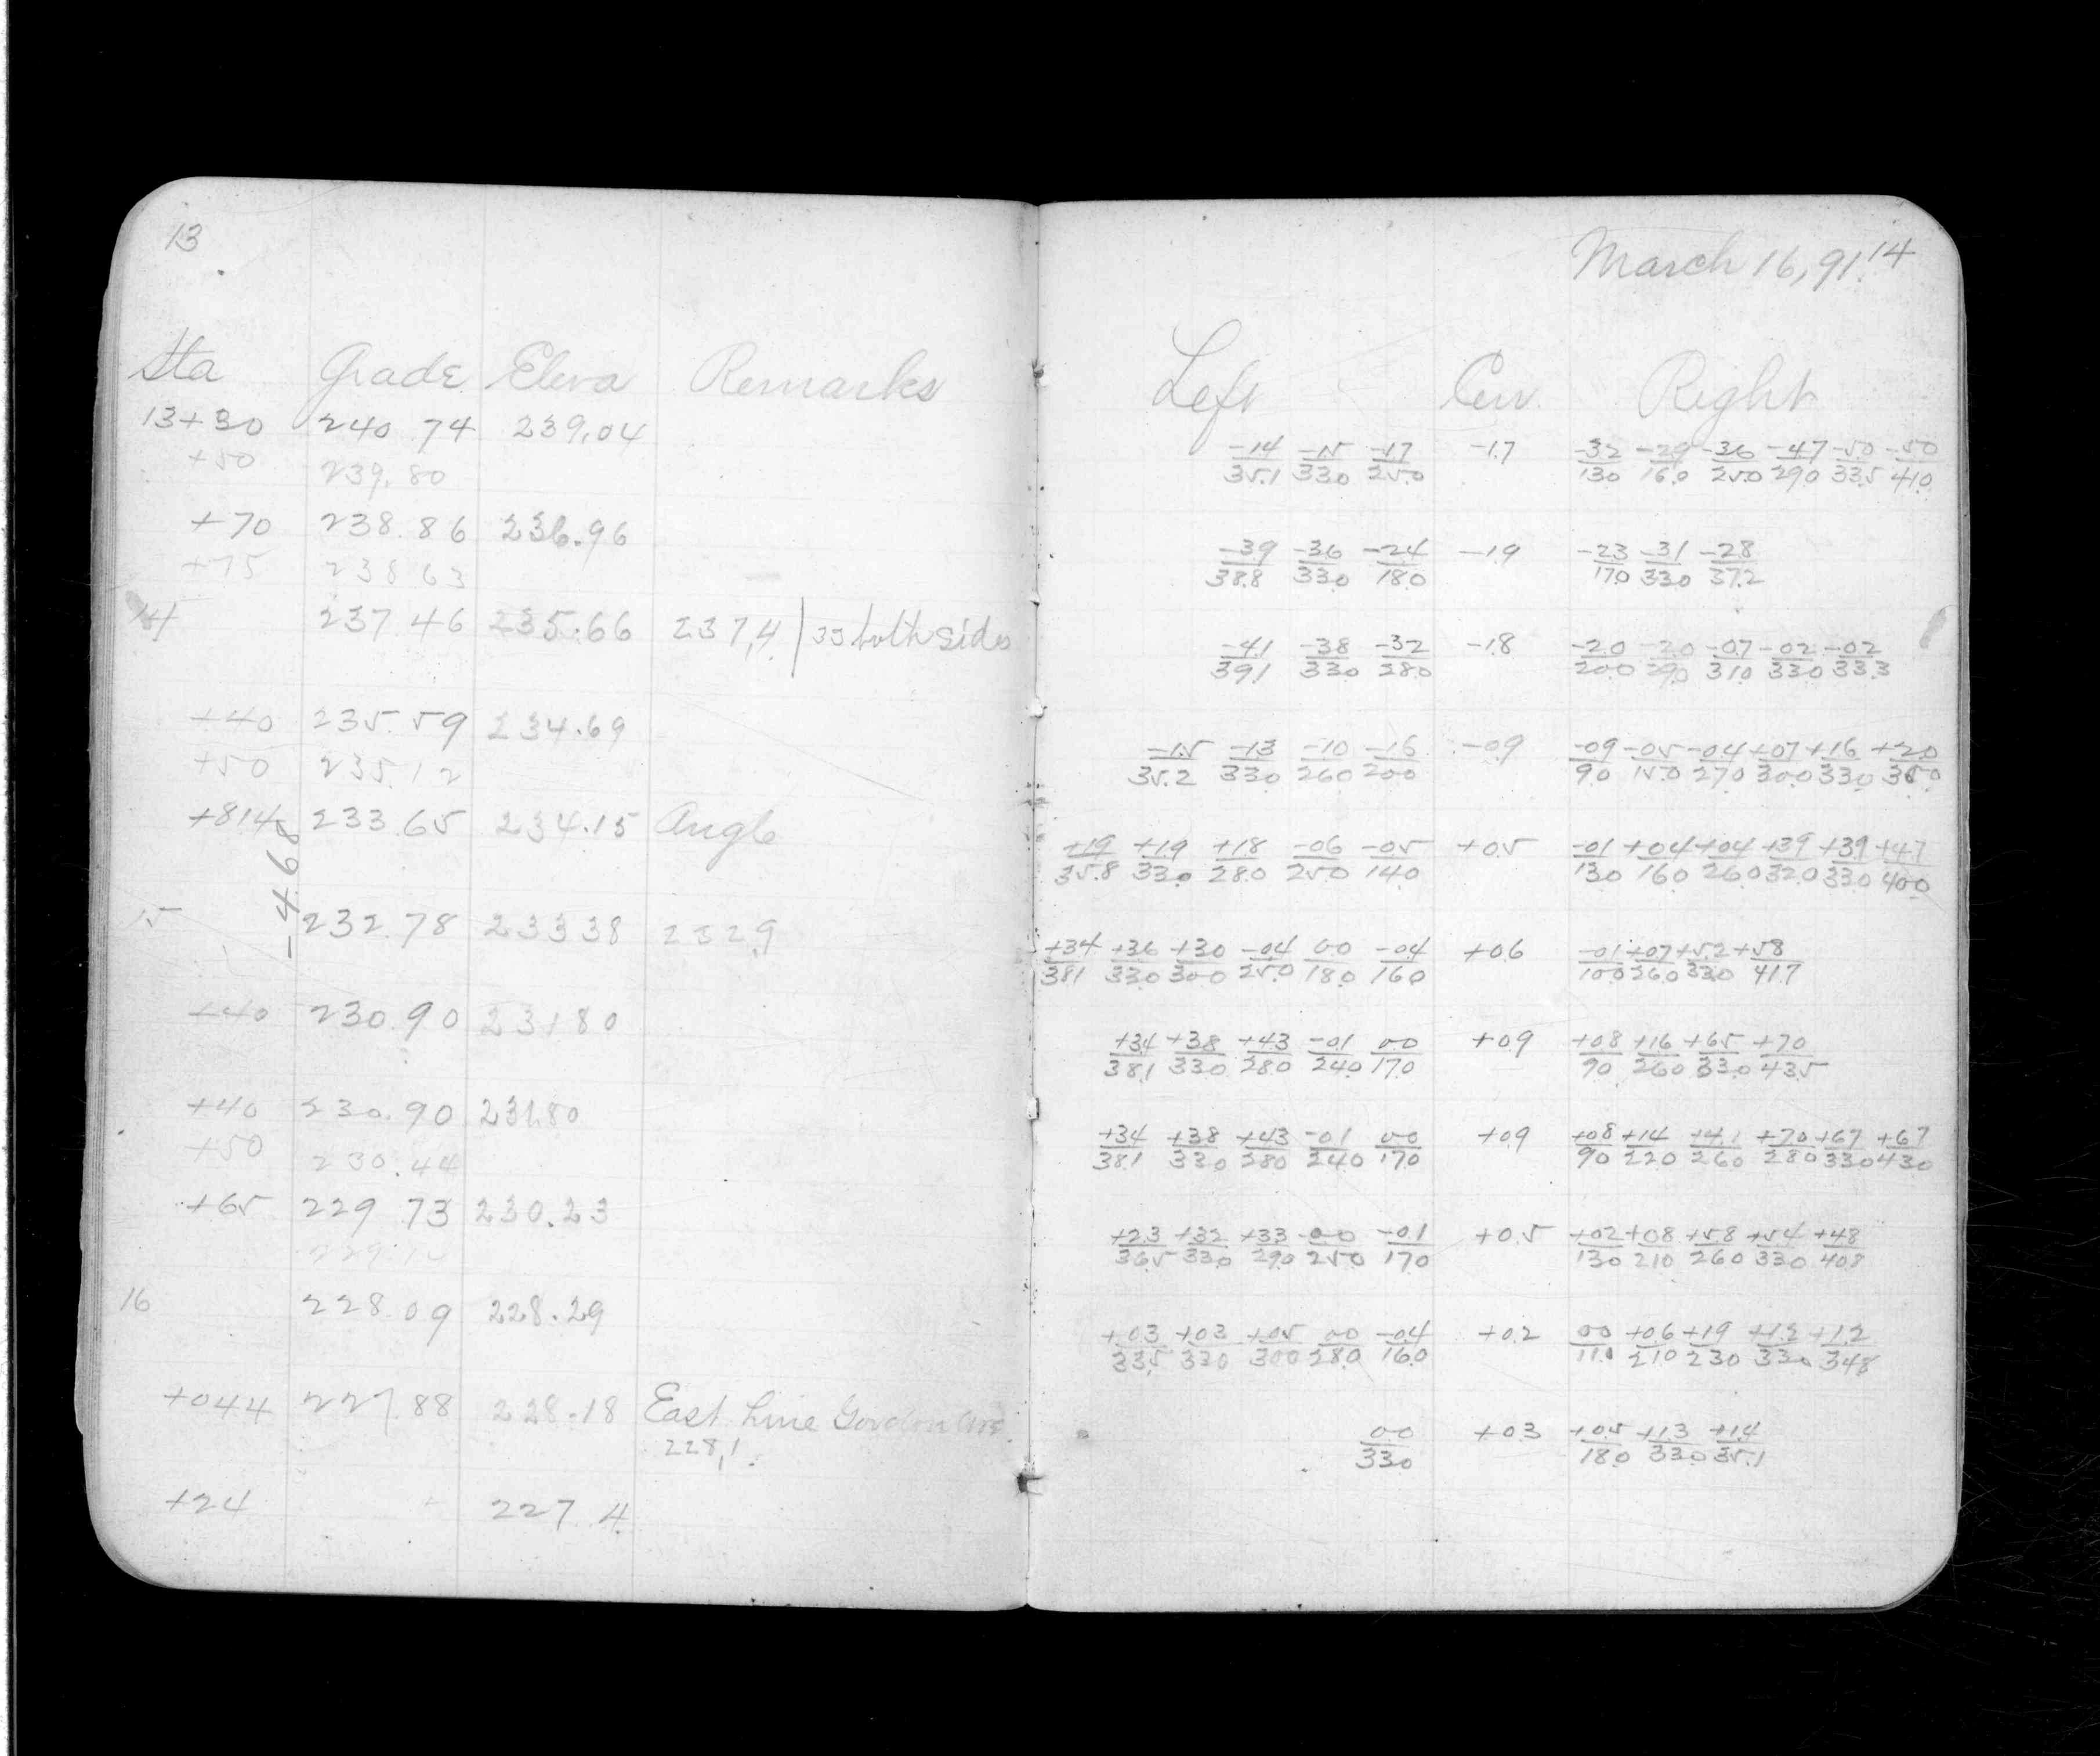 13
Sta Grade Eleva Remarks
13+30 240.74 239.04
+50 239.80
+70 238.86 236.96
+75 238 63
14 237.46 235.66 237.4 | 33 both sides
+40 235.59 234.69
+50 235.12
+814 233.65 234.15 Angle
-4.68
15 232.78 233 38 232.9
+40 230.90 231 80
+40 230.90 231.80
+50 230.44
+65 229.73 230.23
16 228.09 228.29
+044 227.88 228.18 East Line Gordon Ave.
228.1
+24 227.4
March 16, 91. 14
Left Cen. Right
-1.4/35.1 -1.5/33.0 -1.7/25.0 -1.7 -3.2/13.0 -2.9/16.0 -3.6/25.0 -4.7/29.0 -5.0/33.5 -5.0/41.0
-3.9/38.8 -3.6/33.0 -2.4/18.0 -1.9 -2.3/17.0 -3.1/33.0 -2.8/37.2
-4.1/39.1 -3.8/33.0 -3.2/28.0 -1.8 -2.0/20.0 -2.0/29.0 -0.7/31.0 -0.2/33.0 -0.2/33.3
-1.5/35.2 -1.3/33.0 -1.0/26.0 -1.6/20.0 -0.9 -0.9/9.0 -0.5/15.0 -0.4/27.0 +0.7/30.0 +1.6/33.0 +2.0/36.0
+1.9/35.8 +1.9/33.0 +1.8/28.0 -0.6/25.0 -0.5/14.0 +0.5 -0.1/13.0 +0.4/16.0 +0.4/26.0 +3.9/32.0 +3.9/33.0 +4.7/40.0
+3.4/38.1 +3.6/33.0 +3.0/30.0 -0.4/25.0 0.0/18.0 -0.4/16.0 +0.6 -0.1/10.0 +0.7/26.0 +5.2/33.0 +5.8/41.7
+3.4/38.1 +3.8/33.0 +4.3/28.0 -0.1/24.0 0.0/17.0 +0.9 +0.8/9.0 +1.6/26.0 +6.5/33.0 +7.0/43.5
+3.4/38.1 +3.8/33.0 +4.3/28.0 -0.1/24.0 0.0/17.0 +0.9 +0.8/9.0 +1.4/22.0 +4.1/26.0 +7.0/28.0 +6.7/33.0 +6.7/43.0
+2.3/36.5 +3.2/33.0 +3.3/29.0 0.0/25.0 -0.1/17.0 +0.5 +0.2/13.0 +0.8/21.0 +5.8/26.0 +5.4/33.0 +4.8/40.8
+0.3/33.5 +0.3/33.0 +0.5/30.0 0.0/28.0 -0.4/16.0 +0.2 0.0/11.0 +0.6/21.0 +1.9/23.0 +1.2/33.0 +1.2/34.8
0.0/33.0 +0.3 +0.5/18.0 +1.3/33.0 +1.4/35.1